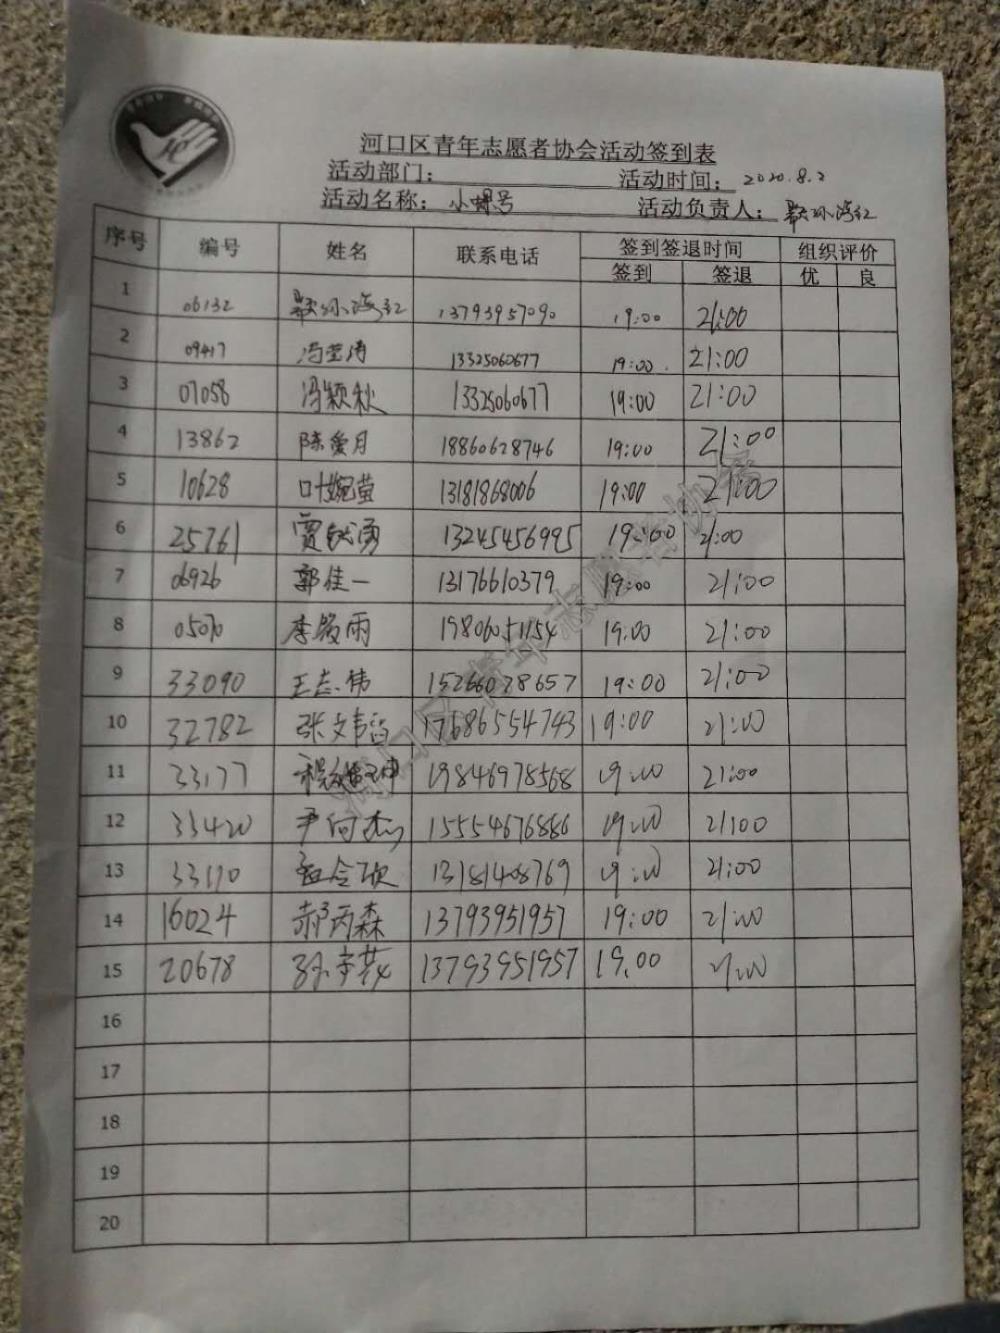 河口区青年志愿者协会活动签到表
活动部门： 活动时间：2020.8.2
活动名称：小蜉号 活动负责人：
序号 编号 姓名 联系电话 签到签退时间 组织评价
签到 签退 优 良
1 06132 13793957090 19:00 21:00
2 09417 13325060677 19:00 21:00
3 07058 冯颖秋 13325060677 19:00 21:00
4 13862 陈爱月 18860628746 19:00 21:00
5 10628 叶婉莹 13181868006 19:00 21:00
6 25761 13245456995 19:00 21:00
7 06926 郭佳一 13176610379 19:00 21:00
8 05070 李筱雨 19806051154 19:00 21:00
9 33090 王志伟 15266028657 19:00 21:00
10 32782 17686554743 19:00 21:00
11 33177 19846978568 19:00 21:00
12 33420 尹向杰 15554676886 19:00 21:00
13 33110 13181408769 19:00 21:00
14 16024 郝丙森 13793951957 19:00 21:00
15 20678 13793951957 19:00 21:00
16
17
18
19
20
河口区青年志愿者协会